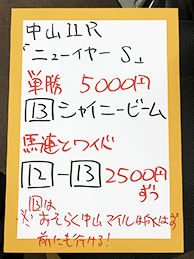 中山11R
「ニューイヤーS」
単勝 5000円
13 シャイニービーム
馬連とワイド
12-13 2500円
ずつ
※13は
おそらく中山マイルは向くはず
前にも行ける!